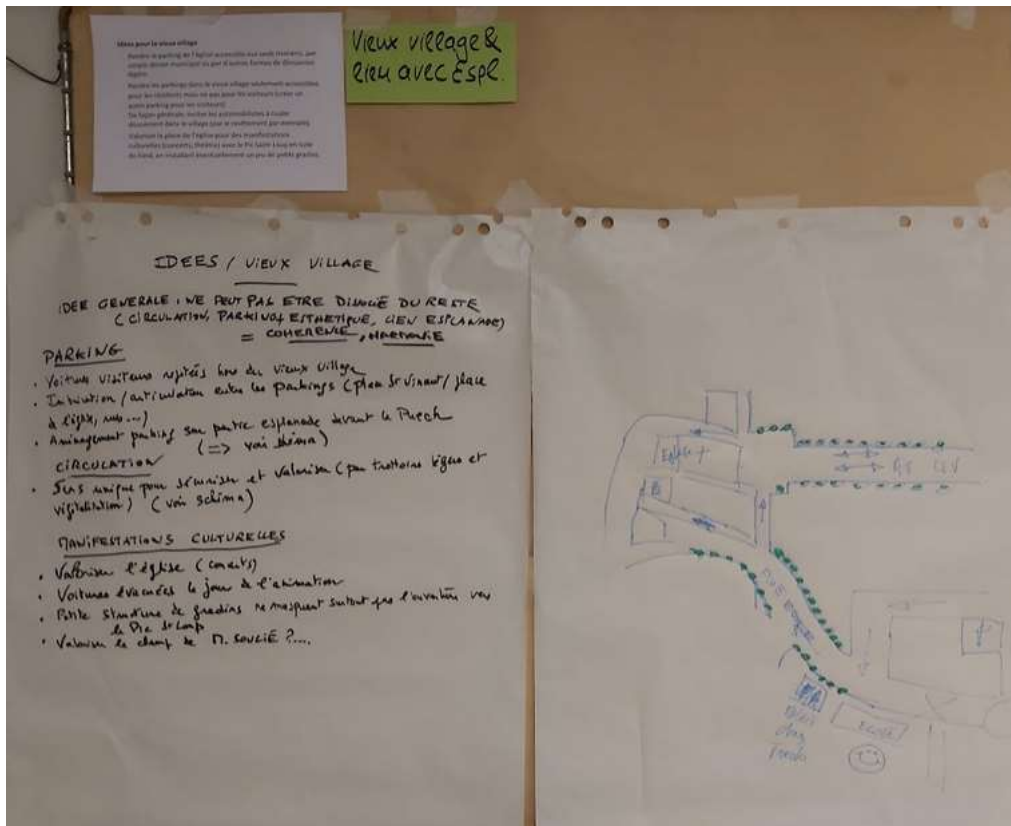 Idées pour le vieux village
Rendre le parking de l'église accessible aux seuls riverains, par
simple décret municipal ou par d'autres formes de
légère.
Rendre les parkings dans le vieux village seulement accessibles
pour les résidents mais ne pas pour les visiteurs (créer un
autre parking pour les visiteurs)
De façon générale, inciter les automobilistes à rouler
doucement dans le village (par le revêtement par exemple).
Valoriser la place de l'église pour des manifestations
culturelles (concerts, théâtre) avec le Pic Saint Loup en toile
de fond, en installant éventuellement un peu de petits gradins.
Vieux village &
lien avec Espl.
IDEES / VIEUX VILLAGE
IDEE GENERALE : NE PEUT PAS ETRE DISSOCIÉ DU RESTE
(CIRCULATION, PARKING, ESTHETIQUE, LIEN ESPLANADE)
= COHERENCE, HARMONIE
PARKING
• Voitures visiteurs rejetées hors du vieux village
• / articulation entre les parkings (plan St Vincent / place
à l'église, ...)
• Aménagement parking sur partie esplanade devant le Puech
(=> voir schéma)
CIRCULATION
• Sens unique pour sécuriser et valoriser (par trottoirs légers et
végétalisation) (voir schéma)
MANIFESTATIONS CULTURELLES
• Valoriser l'église (concerts)
• Voitures évacuées le jour de l'animation
• Petite structure de gradins ne masquant surtout pas l'ouverture vers
le Pic St Loup
• Valoriser le champ de M. SOULIÉ ?....
Eglise +
ECOLE